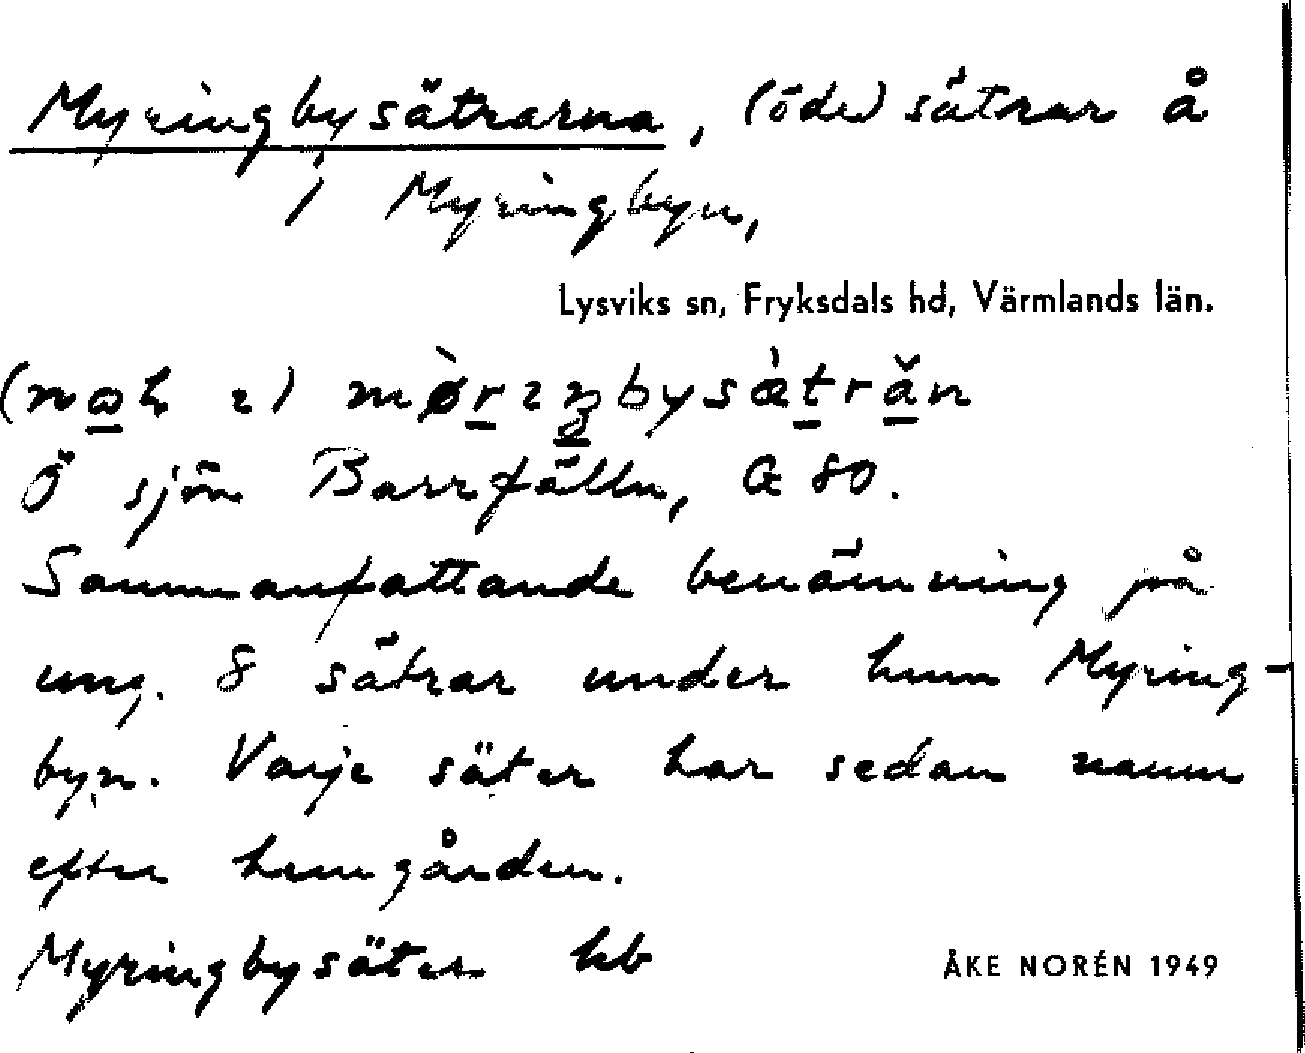 Myringbysätrarna, (öde) sätrar å
/ Myringbyn,
Lysviks sn, Fryksdals hd, Värmlands län.
Ö sjön Barrfälln, Æ 80.
Sammanfattande benämning på
ung. 8 sätrar under hmn Myring-
byn. Varje säter har sedan namn
efter hemgården.
Myringbysäter hb
ÅKE NORÉN 1949